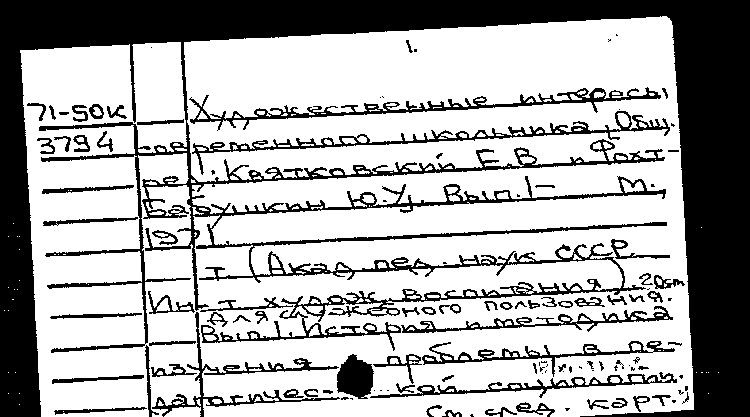 1.
71-50К Художественные интересы
3794 современного школьника, Общ.
ред.: Квятковский Е.В и Фохт-
Бабушкин Ю.У. Вып. 1- М.,
1971.
т (Акад. пед. наук СССР.
Ин-т худож. воспитания). 20см.
Для служебного пользования.
Вып. 1. История и методика
изучения проблемы в пе-
дагогичес- кой социологии.
См. след. карт.